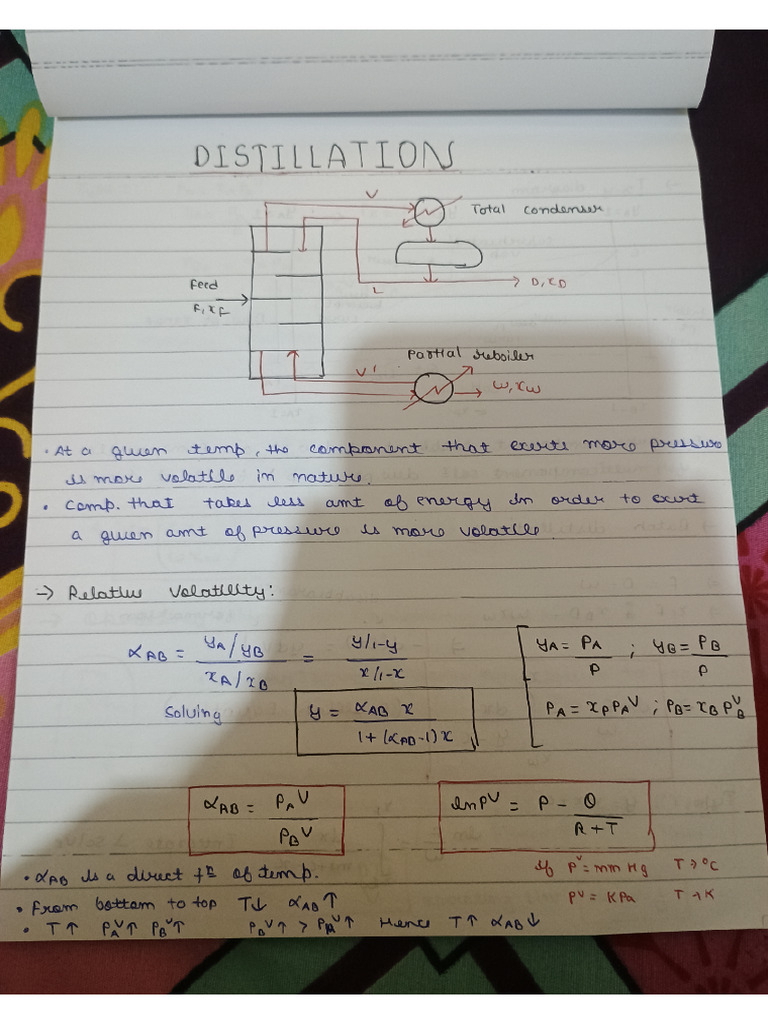 DISTILLATION
V
Total condenser
Feed
F, xF
L
D, xD
Partial reboiler
V'
W, xW
• At a given temp, the component that exerts more pressure
is more volatile in nature.
• Comp. that takes less amt of energy in order to exert
a given amt of pressure is more volatile.
→ Relative Volatility:
αAB = (yA/yB)/(xA/xB) = (y/1-y)/(x/1-x)
yA = PA/P ; yB = PB/P
Solving y = αAB x/(1+(αAB-1)x)
PA = xP PA^V ; PB = xB PB^V
αAB = PA^V/PB^V
ln P^V = P - Q/(R+T)
• αAB is a direct fn of temp.
if P^V = mm Hg T → °C
• From bottom to top T↓ αAB↑
P^V = KPa T → K
• T↑ PA^V↑ PB^V↑ PB^V↑ > PA^V↑ Hence T↑ αAB↓